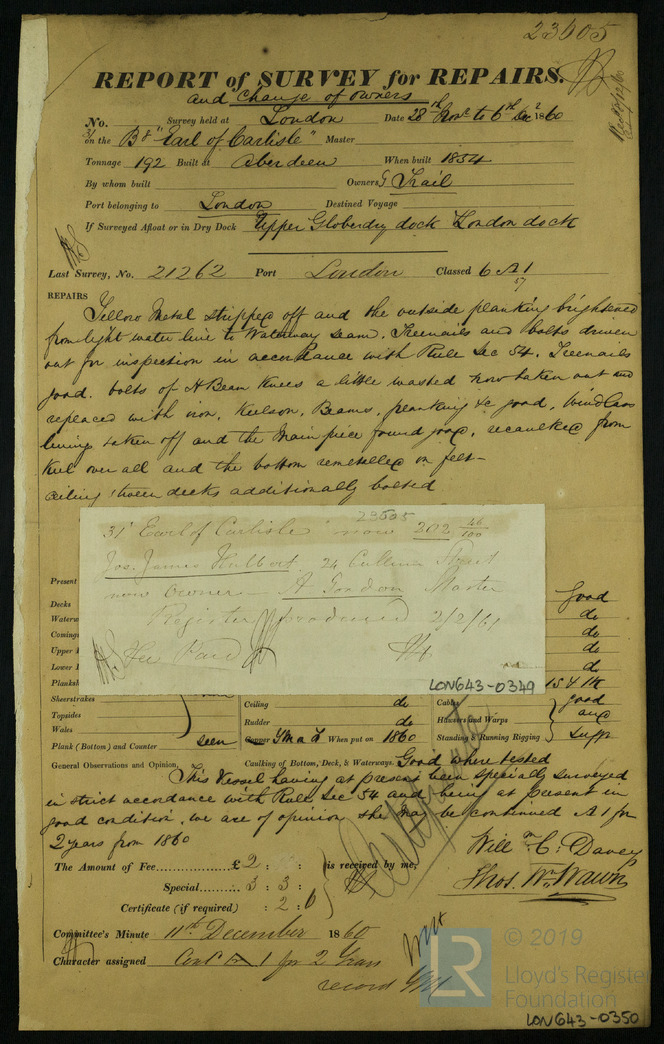 23605
REPORT of SURVEY for REPAIRS.
and Change of owners
No. Survey held at London Date 28th Novr to 6th Dec 1860
31 on the Bk "Earl of Carlisle" Master
Tonnage 192 Built at Aberdeen When built 1854
By whom built Owners G Trail
Port belonging to London Destined Voyage
If Surveyed Afloat or in Dry Dock Upper Globe dry dock London dock
Last Survey, No. 21262 Port London Classed 6 A 1
57
REPAIRS Yellow Metal stripped off and the outside planking brightened
from light water line to Waterway seam. Treenails and bolts driven
out for inspection in accordance with Rule Sec 54. Treenails
good. bolts of H Beam Knees a little wasted now taken out and
replaced with iron. Keelson, Beams, planking &c good, Windlass
lining taken off and the Main piece found good, recaulked from
Keel over all and the bottom remetalled on felt-
ceiling 'tween decks additionally bolted
23605
31 "Earl of Carlisle" now 202 46/100
Jos. James Hulbert. 24 Cullum Street
now Owner - A Gordon Master
Register produced 2/2/61
Fee Paid
LON643-0349
Present
Decks good
do
Comings do
do
do
Sheerstrakes
Topsides
Wales
Plank (Bottom) and Counter seen
Ceiling do
Rudder do
Copper YM a F When put on 1860
Cables good
Hawsers and Warps and
Standing & Running Rigging sufft
General Observations and Opinion, Caulking of Bottom, Deck, & Waterways. Good where tested
This Vessel having at present been specially surveyed
in strict accordance with Rule Sec 54 and being at present in
good condition, we are of opinion she may be continued A1 for
2 years from 1860
The Amount of Fee...... £2 : : is received by me,
Special....... 3 : 3 :
Certificate (if required) : 2 : 6
Will m C. Davey
Thos. Wm Wawn
Committee's Minute 11th December 1860
Character assigned Cont A 1 for 2 Years
record YM
© 2019
LR
Lloyd's Register
Foundation
LON643-0350